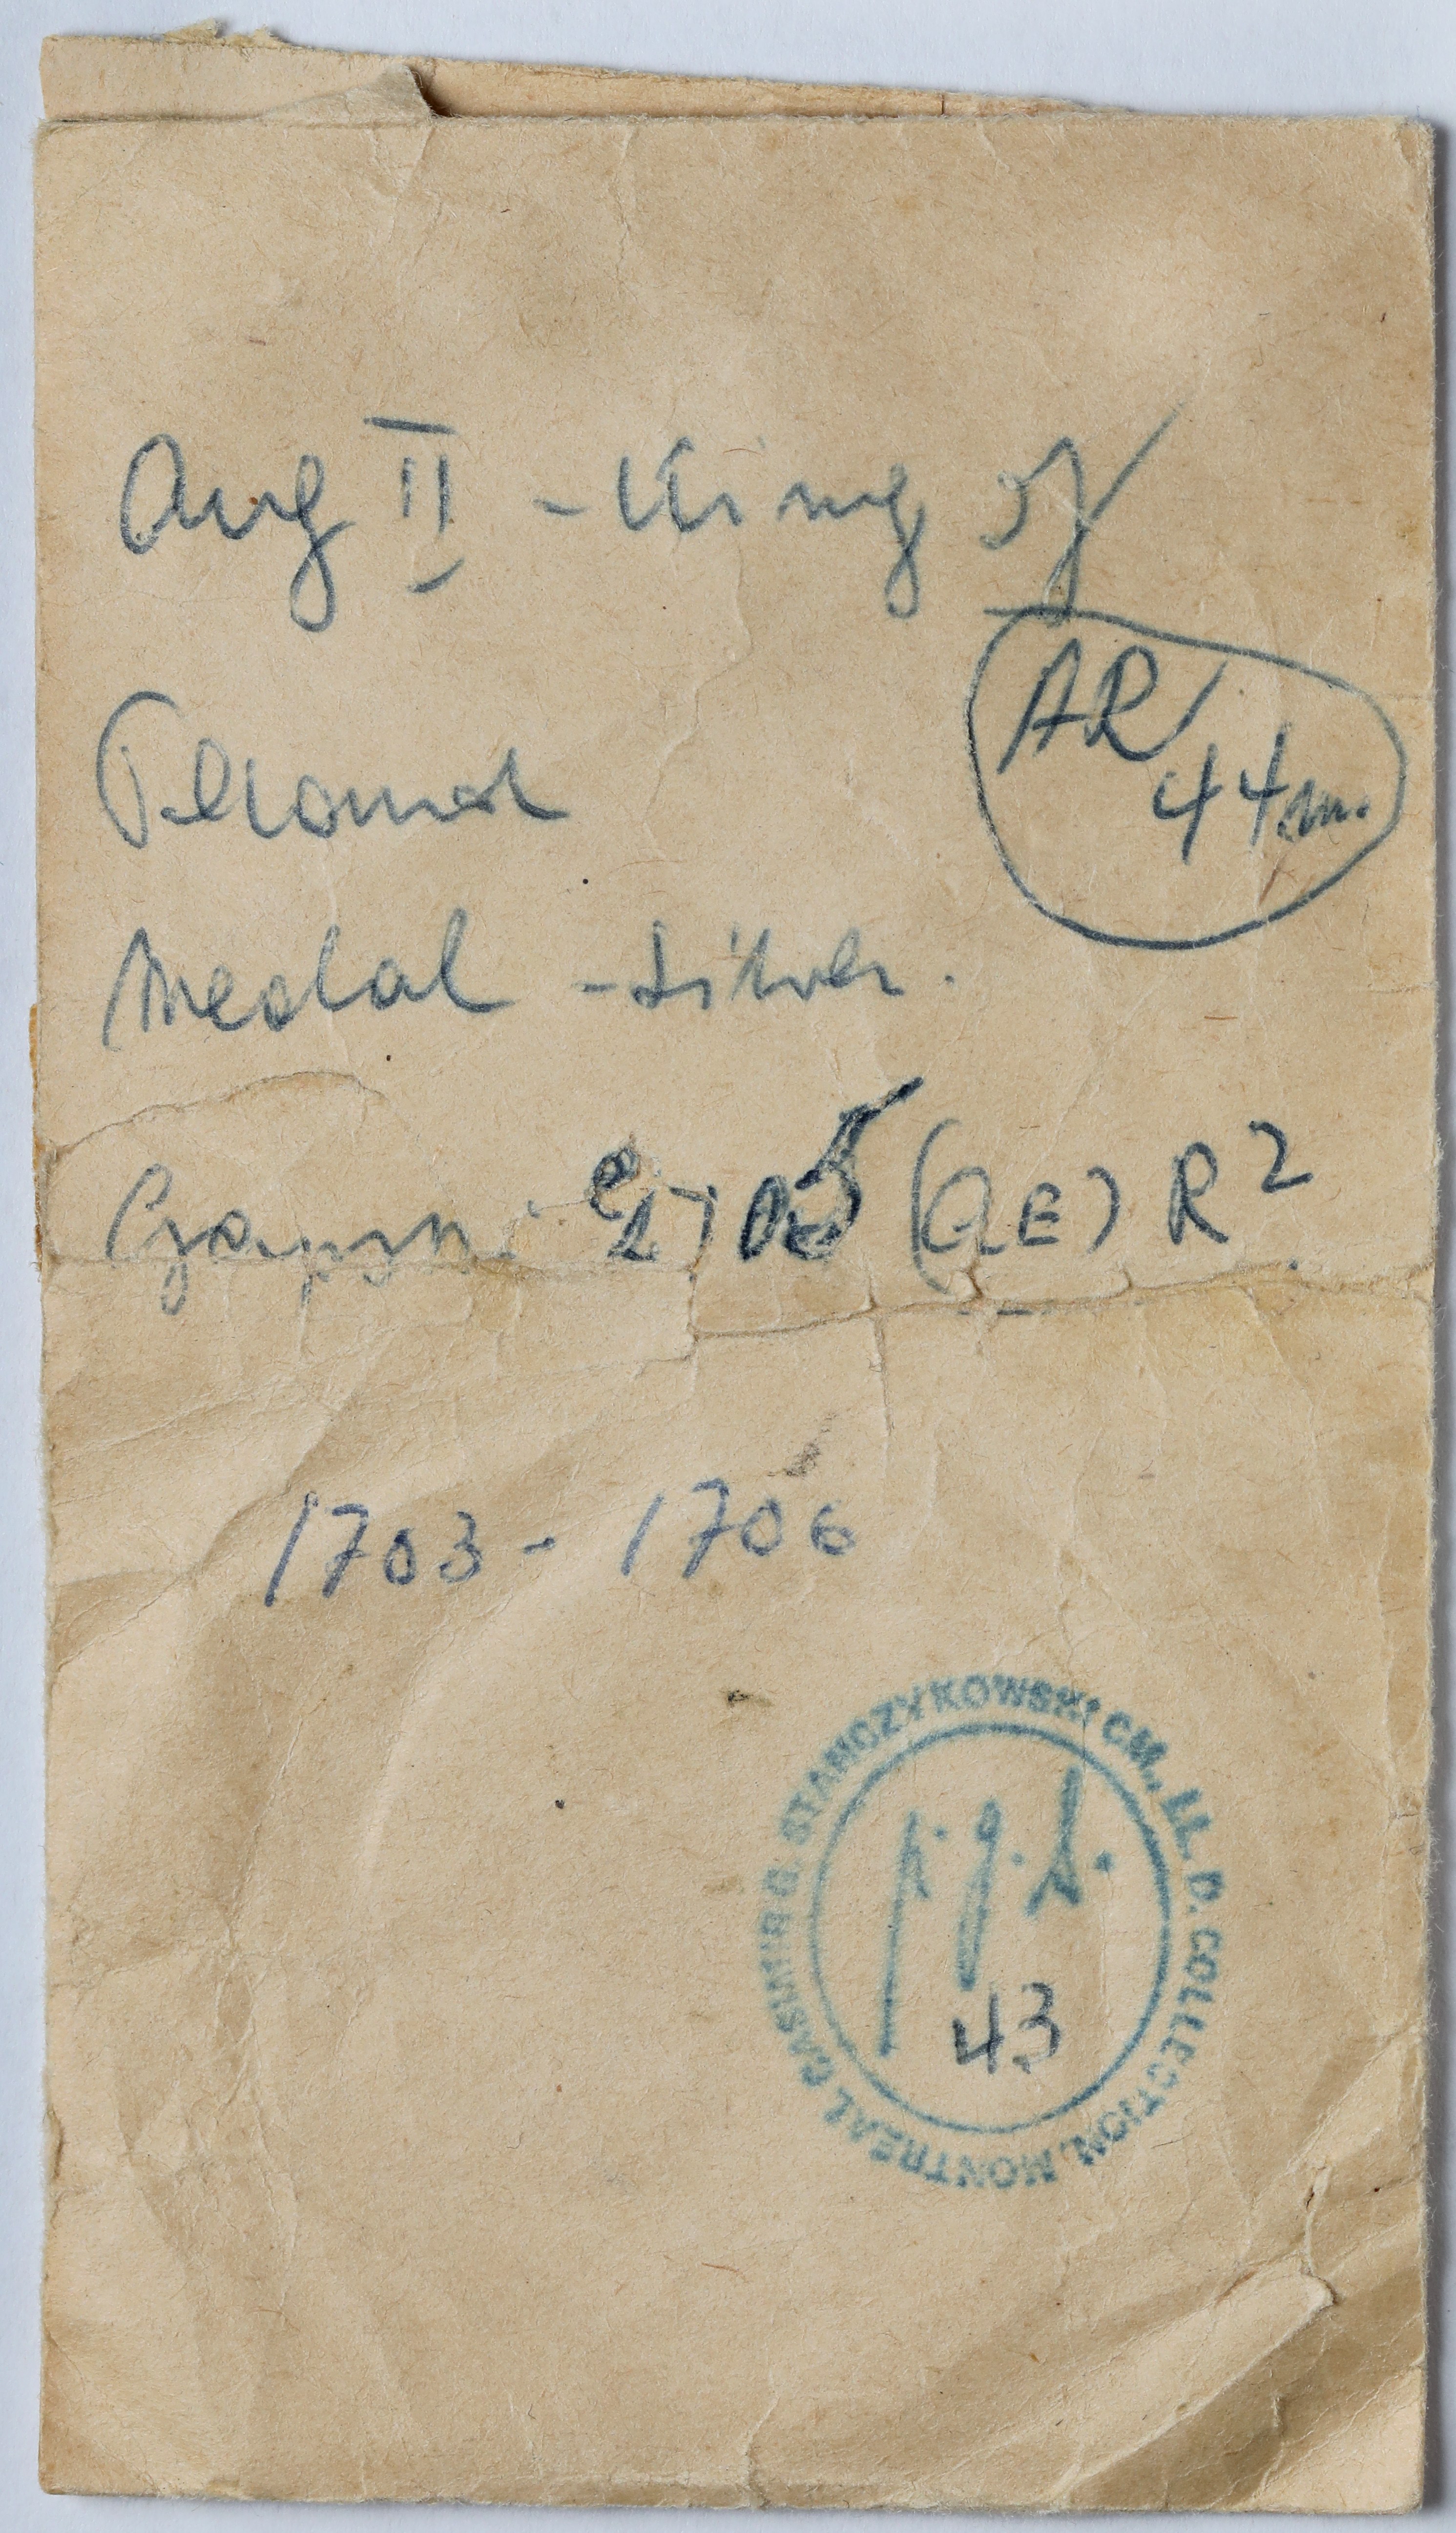 Aug II - King of
AR
44 m.
Medal - silver.
(AE) R²
1703 - 1706
CASIMIR G. STANCZYKOWSKI CM., LL. D. COLLECTION, MONTREAL
43